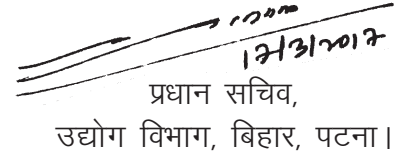 17/3/2017
प्रधान सचिव,
उद्योग विभाग, बिहार, पटना।